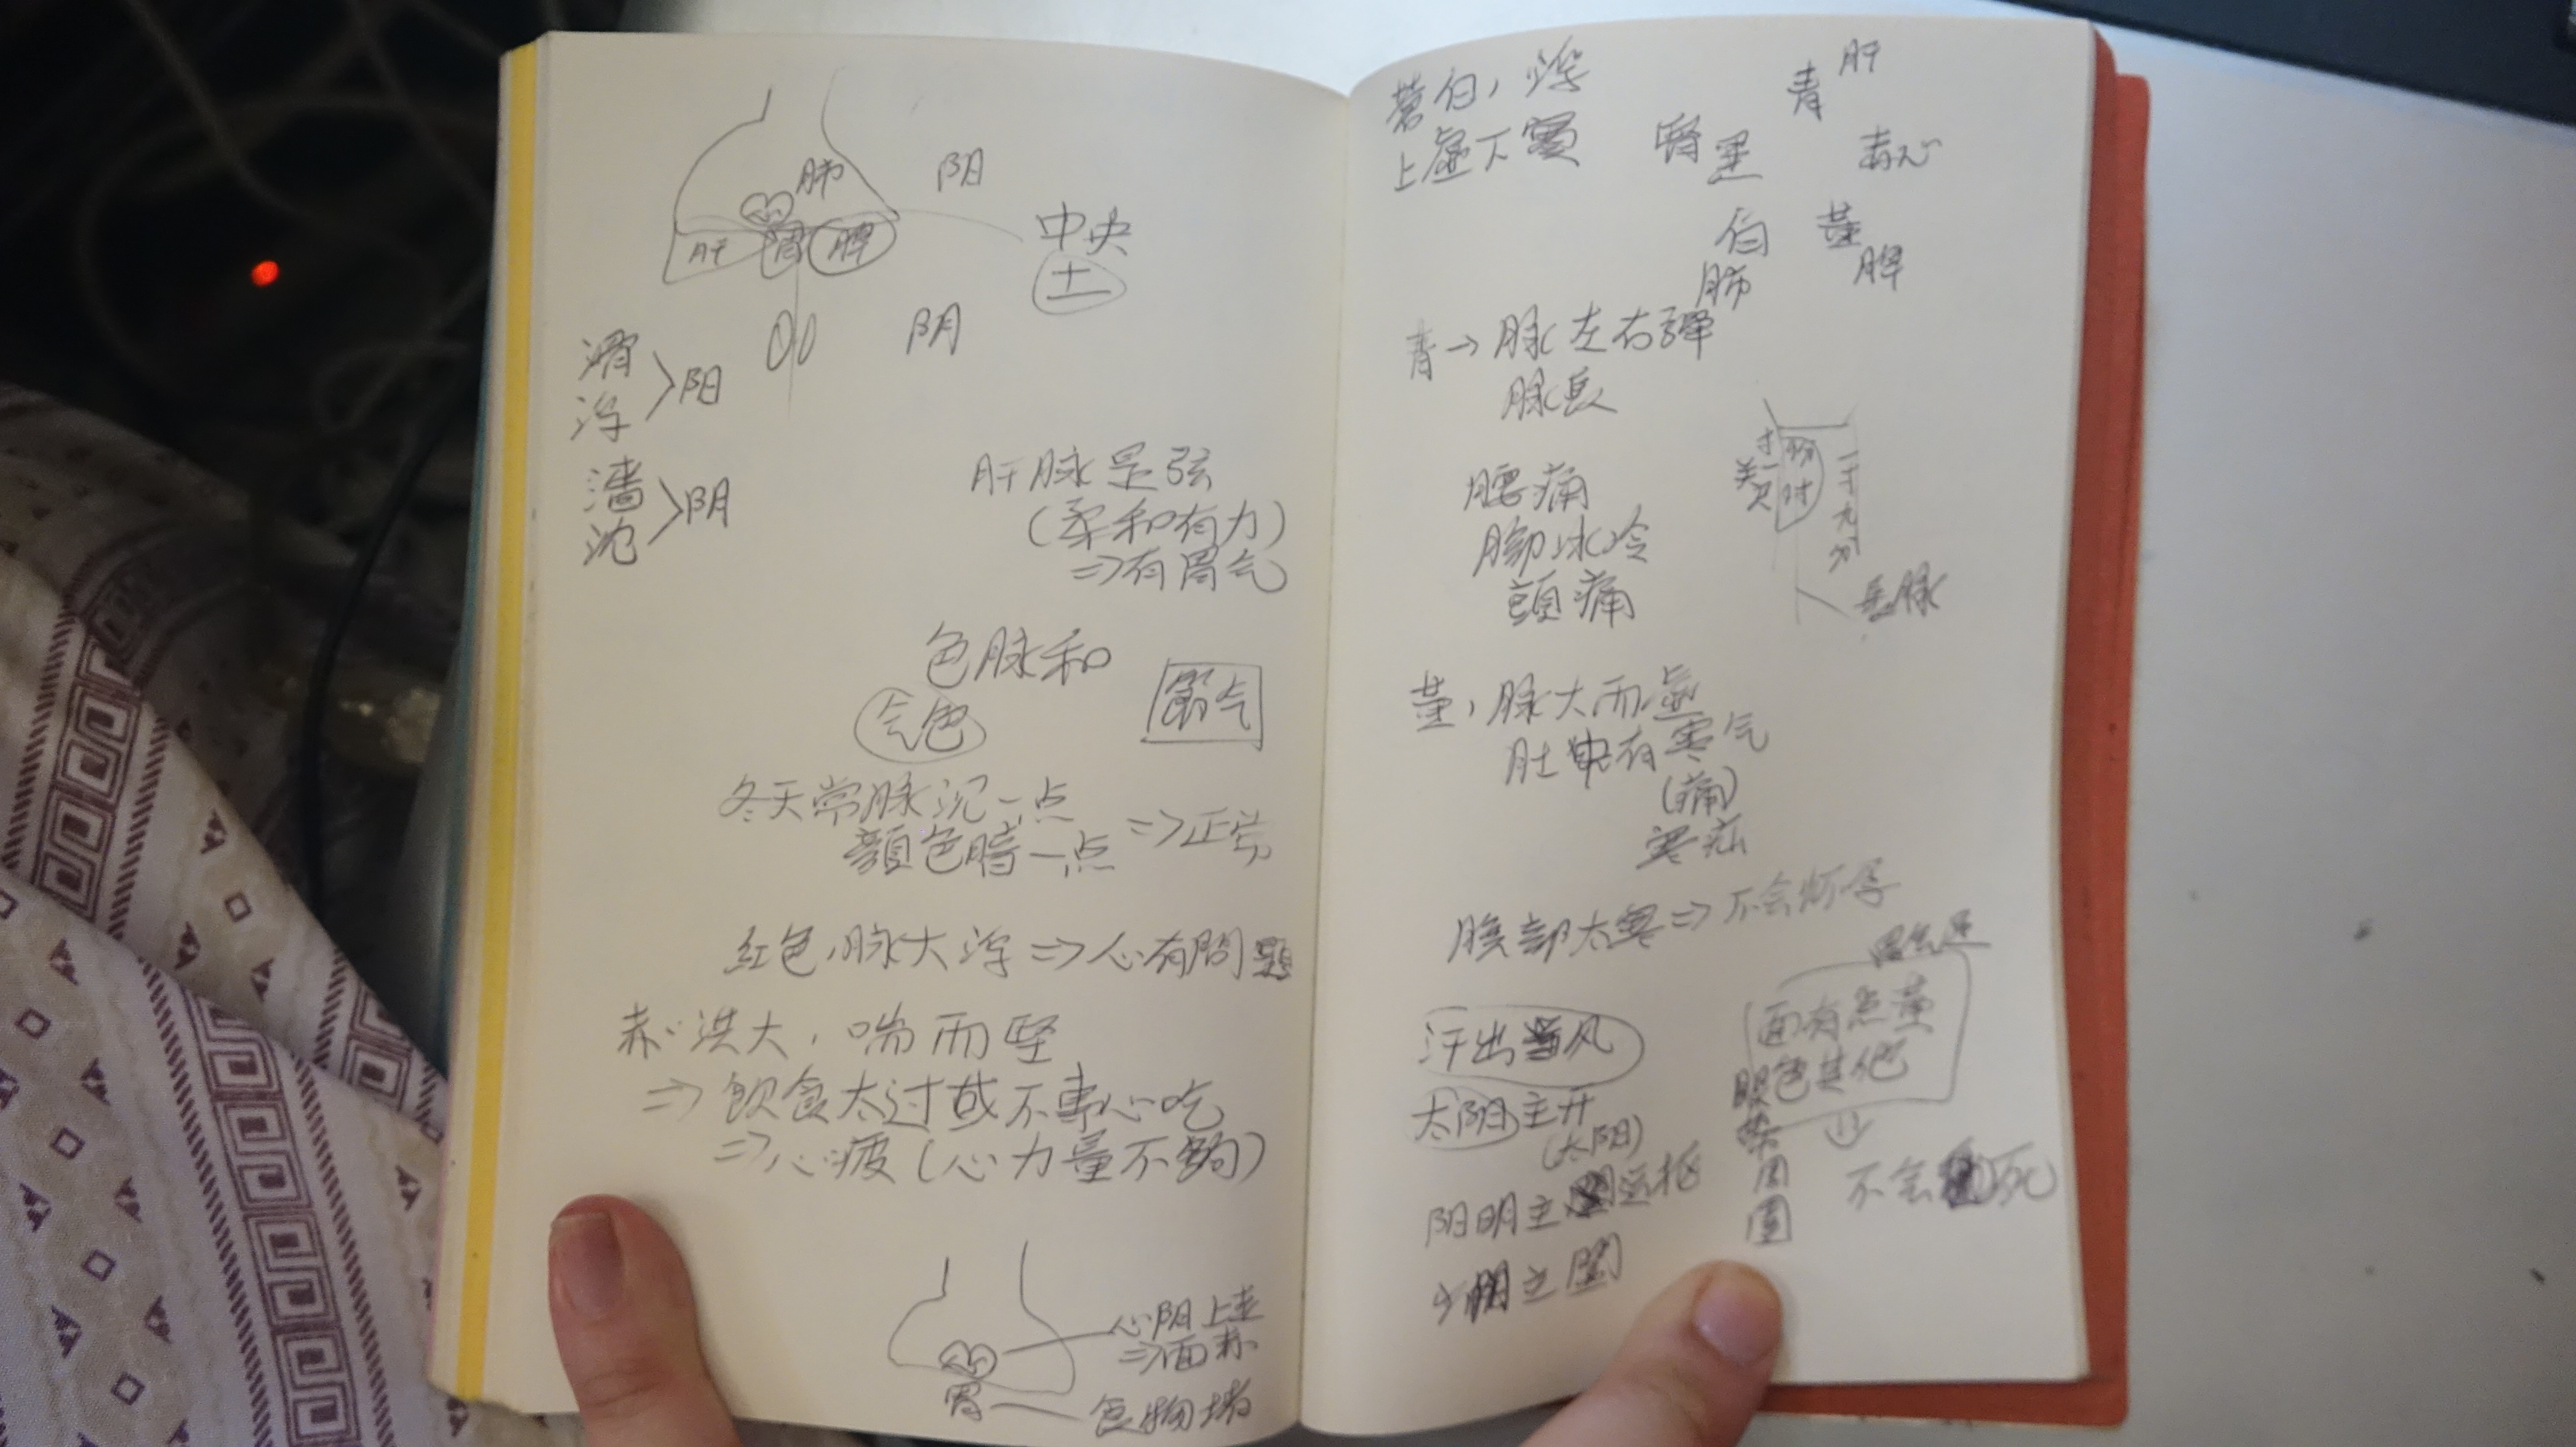 肺
阳
中央
土
肝 胃 脾
阴
滑
浮
阳
濇
沈
阴
肝脉是弦
(柔和有力)
⇒有胃气
色脉和
气色
節气
冬天常脉沉一点
顏色暗一点 ⇒正常
紅色,脉大浮⇒心有問題
赤:洪大,喘而坚
⇒飲食太过或不專心吃
⇒心疲(心力量不夠)
心阳上走
⇒面赤
胃
食物堵
蒼白,浮
上虛下實
肝
青
腎 黑
赤心
白
肺
黄
脾
青→脉左右彈
脉長
寸
关
尺
一寸九分
腰痛
脚冰冷
頭痛
黄,脉大而虛
肚中有寒气
(痛)
寒疝
腹部太寒⇒不会怀孕
汗出当风
面有点黄
色其他
眼
周
圍
⇓
不会死
太阳主开
(太阳)
阳明主
少阳主